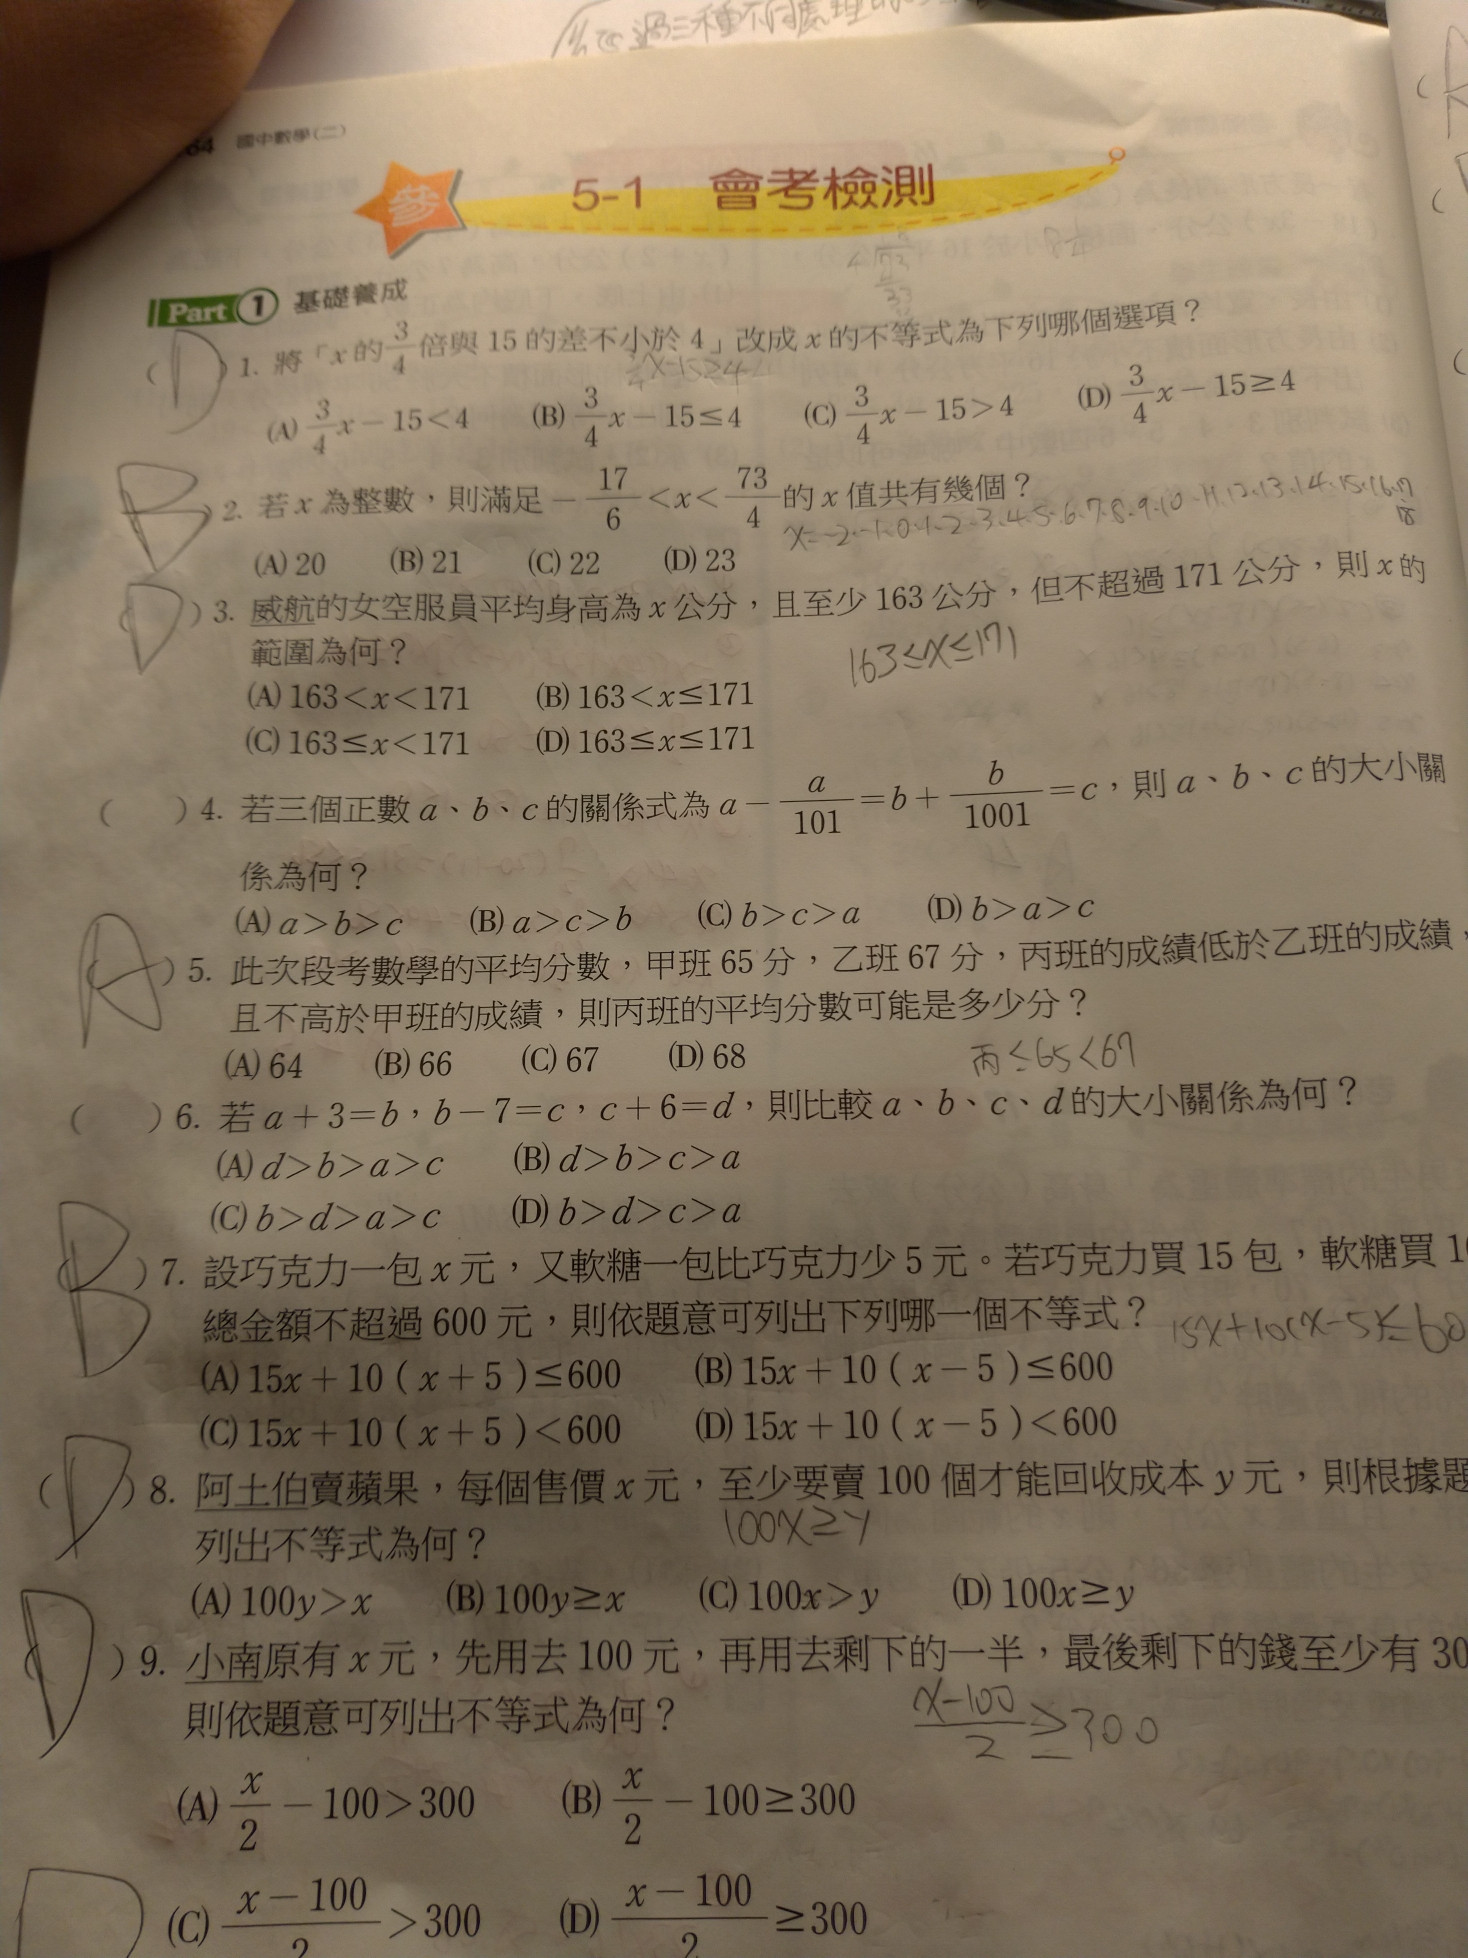 64 國中數學(二)
參 5-1 會考檢測
Part 1 基礎養成
(D) 1. 將「x 的 3/4 倍與 15 的差不小於 4」改成 x 的不等式為下列哪個選項？
3/4x-15≥4
(A) 3/4 x－15＜4 (B) 3/4 x－15≤4 (C) 3/4 x－15＞4 (D) 3/4 x－15≥4
(B) 2. 若 x 為整數，則滿足 －17/6＜x＜73/4 的 x 值共有幾個？
x=-2.-1.0.1.2.3.4.5.6.7.8.9.10.11.12.13.14.15.16.17
18
(A) 20 (B) 21 (C) 22 (D) 23
(D) 3. 威航的女空服員平均身高為 x 公分，且至少 163 公分，但不超過 171 公分，則 x 的
範圍為何？
163≤x≤171
(A) 163＜x＜171 (B) 163＜x≤171
(C) 163≤x＜171 (D) 163≤x≤171
( ) 4. 若三個正數 a、b、c 的關係式為 a－a/101＝b＋b/1001＝c，則 a、b、c 的大小關
係為何？
(A) a＞b＞c (B) a＞c＞b (C) b＞c＞a (D) b＞a＞c
(A) 5. 此次段考數學的平均分數，甲班 65 分，乙班 67 分，丙班的成績低於乙班的成績，
且不高於甲班的成績，則丙班的平均分數可能是多少分？
(A) 64 (B) 66 (C) 67 (D) 68
丙≤65<67
( ) 6. 若 a＋3＝b，b－7＝c，c＋6＝d，則比較 a、b、c、d 的大小關係為何？
(A) d＞b＞a＞c (B) d＞b＞c＞a
(C) b＞d＞a＞c (D) b＞d＞c＞a
(B) 7. 設巧克力一包 x 元，又軟糖一包比巧克力少 5 元。若巧克力買 15 包，軟糖買 1
總金額不超過 600 元，則依題意可列出下列哪一個不等式？
15x+10(x-5)≤60
(A) 15x＋10（x＋5）≤600 (B) 15x＋10（x－5）≤600
(C) 15x＋10（x＋5）＜600 (D) 15x＋10（x－5）＜600
(D) 8. 阿土伯賣蘋果，每個售價 x 元，至少要賣 100 個才能回收成本 y 元，則根據題
列出不等式為何？
100x≥y
(A) 100y＞x (B) 100y≥x (C) 100x＞y (D) 100x≥y
(D) 9. 小南原有 x 元，先用去 100 元，再用去剩下的一半，最後剩下的錢至少有 30
則依題意可列出不等式為何？
x-100/2≥300
(A) x/2－100＞300 (B) x/2－100≥300
D
(C) x－100/2＞300 (D) x－100/2≥300